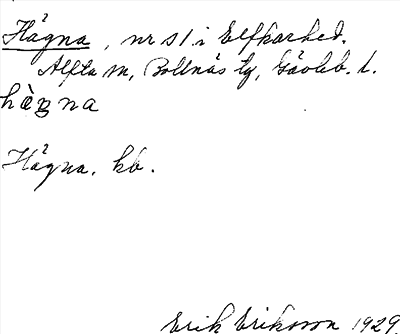 Hågna, nr s1 i Elfkarhed.
Alfta sn, Bollnäs tg, Gävleb. l.
Hågna. kb.
Erik Eriksson 1929.